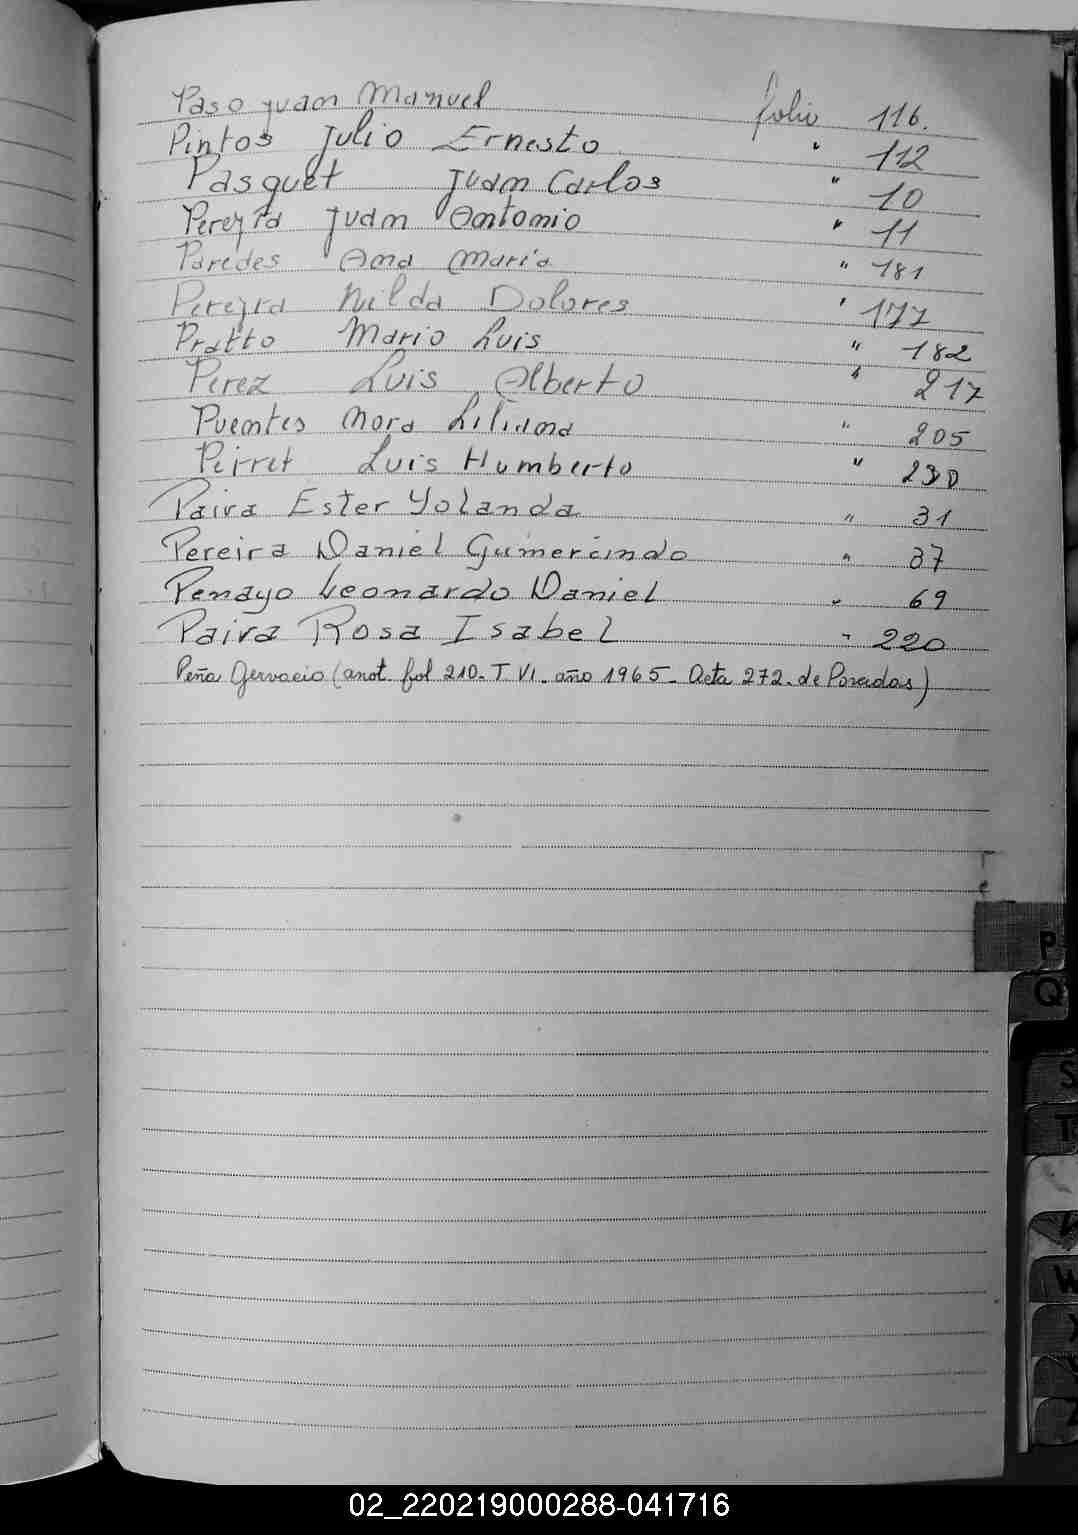 Paso Juan Manuel folio 116.
Pintos Julio Ernesto " 112
Pasquet Juan Carlos " 10
Pereyra Juan Antonio " 11
Paredes Ana Maria " 181
Pereyra Nilda Dolores " 177
Pratto Mario Luis " 182
Perez Luis Alberto " 217
Puentes Nora Liliana " 205
Peirret Luis Humberto " 230
Paiva Ester Yolanda " 31
Pereira Daniel Gumercindo " 37
Penayo Leonardo Daniel " 69
Paiva Rosa Isabel " 220
Peña Gervacio (anot. fol 210. T. VI. año 1965. Acta 272. de Posadas)
P
Q
S
T
V
W
X
Y
Z
02_220219000288-041716